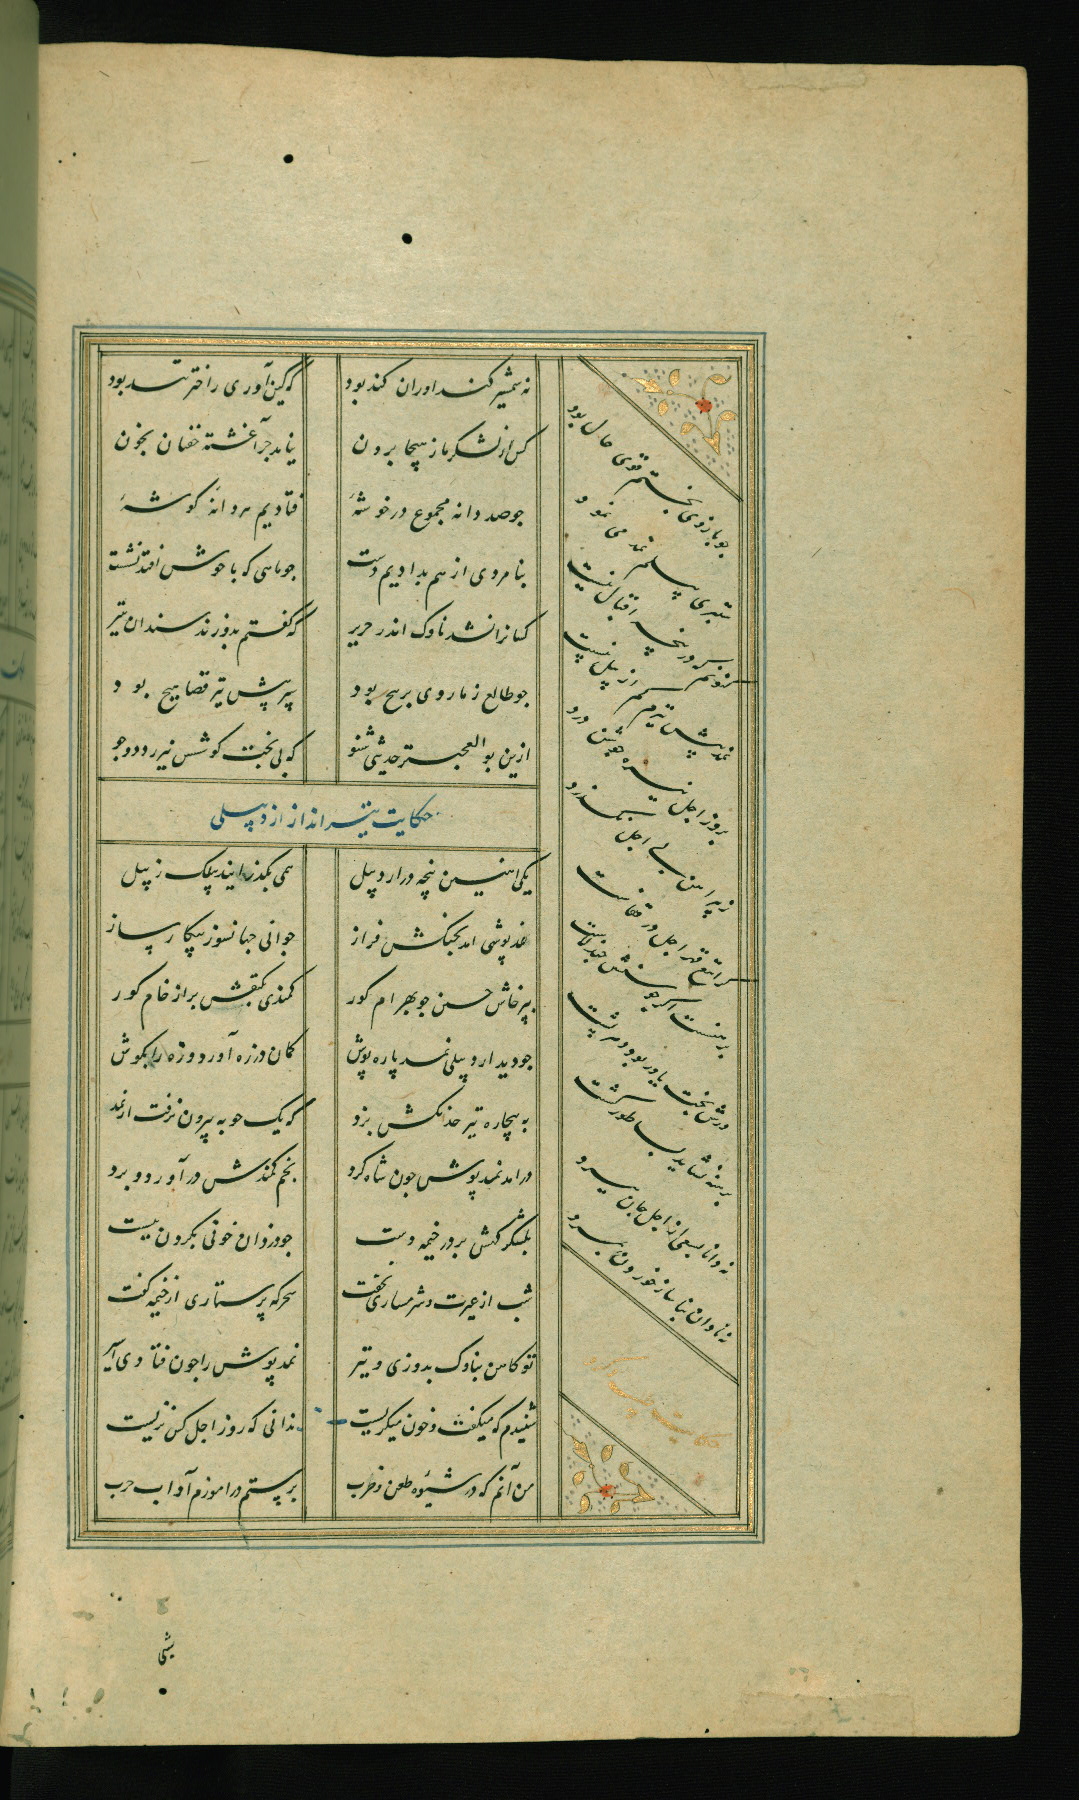 نه شمشیر کنداوران کند بود که کین‌آوری را ختر تند بود
کس از لشکر ما ز هیجا برون نیامد جز آغشته خفتان بخون
جو صد دانه مجموع در خوشهٔ فتادیم هر دانهٔ کوشهٔ
بنامردی از هم بدادیم دست جو ماهی که با جوش افتد نشست
کسانرا نشد ناوک اندر حریر که گفتم بدوزند سندان بتیر
جو طالع ز ما روی بر پیج بود سپر پیش تیر قضا هیج بود
ازین بوالعجب‌تر حدیثی شنو که بی بخت کوشش نیرزد دو جو
حکایت تیرانداز اردبیلی
یکی آهنین پنجه در اردبیل همی بگذرانید بیلک ز پیل
نمد پوشی آمد بجنگش فراز جوانی جهانسوز پیکار ساز
بپرخاش جستن جو بهرام کور کمندی بکتفش بر از خام کور
جو دید اردبیلی نمد پاره پوش کمان در زه آورد و زه را بگوش
به پنجاه تیر خدنگش بزد که یک چوبه بیرون نرفت از نمد
درآمد نمدپوش جون شاه کرد بخم کمندش درآورد و برد
بلشکر گهش برد و در خیمه دست جو دزدان خونی بگردن ببست
شب از غیرت و شرمساری نخفت سحرگه پرستاری از خیمه گفت
تو کاهن بناوک بدوزی و تیر نمدپوش را جون فتادی اسیر
شنیدم که میگفت و خون میگریست ندانی که روز اجل کس نزیست
من آنم که در شیوهٔ طعن و ضرب برستم درآموزم آداب حرب
جو بازوی بختم قوی حال بود
ستبری بیلم نمد می نمود
کنونم که در پنجه اقبال نیست
نمد پیش تیرم کم از بیل نیست
بروز اجل نیزه جوشن درد
ز پیراهن بی اجل نگذرد
کرا تیغ قهر اجل در قفاست
برهنست اگر جوشنش چند لاست
ورش بخت یاور بود دهر پشت
برهنه نشاید بساطور کشت
نه دانا بسعی از اجل جان ببرد
نه نادان بناساز خوردن بمرد
حکایت طبیب و کرد
شبی